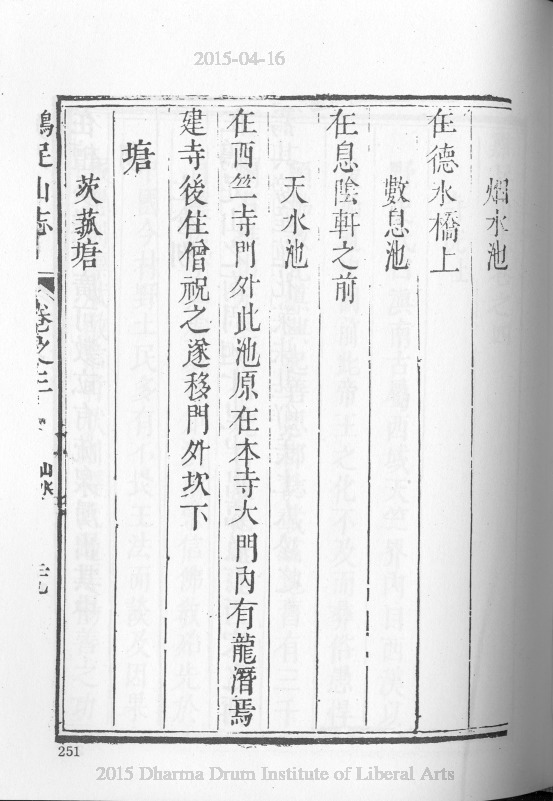 2015-04-16
烟水池
在德水橋上
數息池
在息陰軒之前
天水池
在西竺寺門外此池原在本寺大門內有龍潛焉
建寺後住僧祝之遂移門外坎下
塘
茨菰塘
雞足山志
卷之三
山水
251
2015 Dharma Drum Institute of Liberal Arts